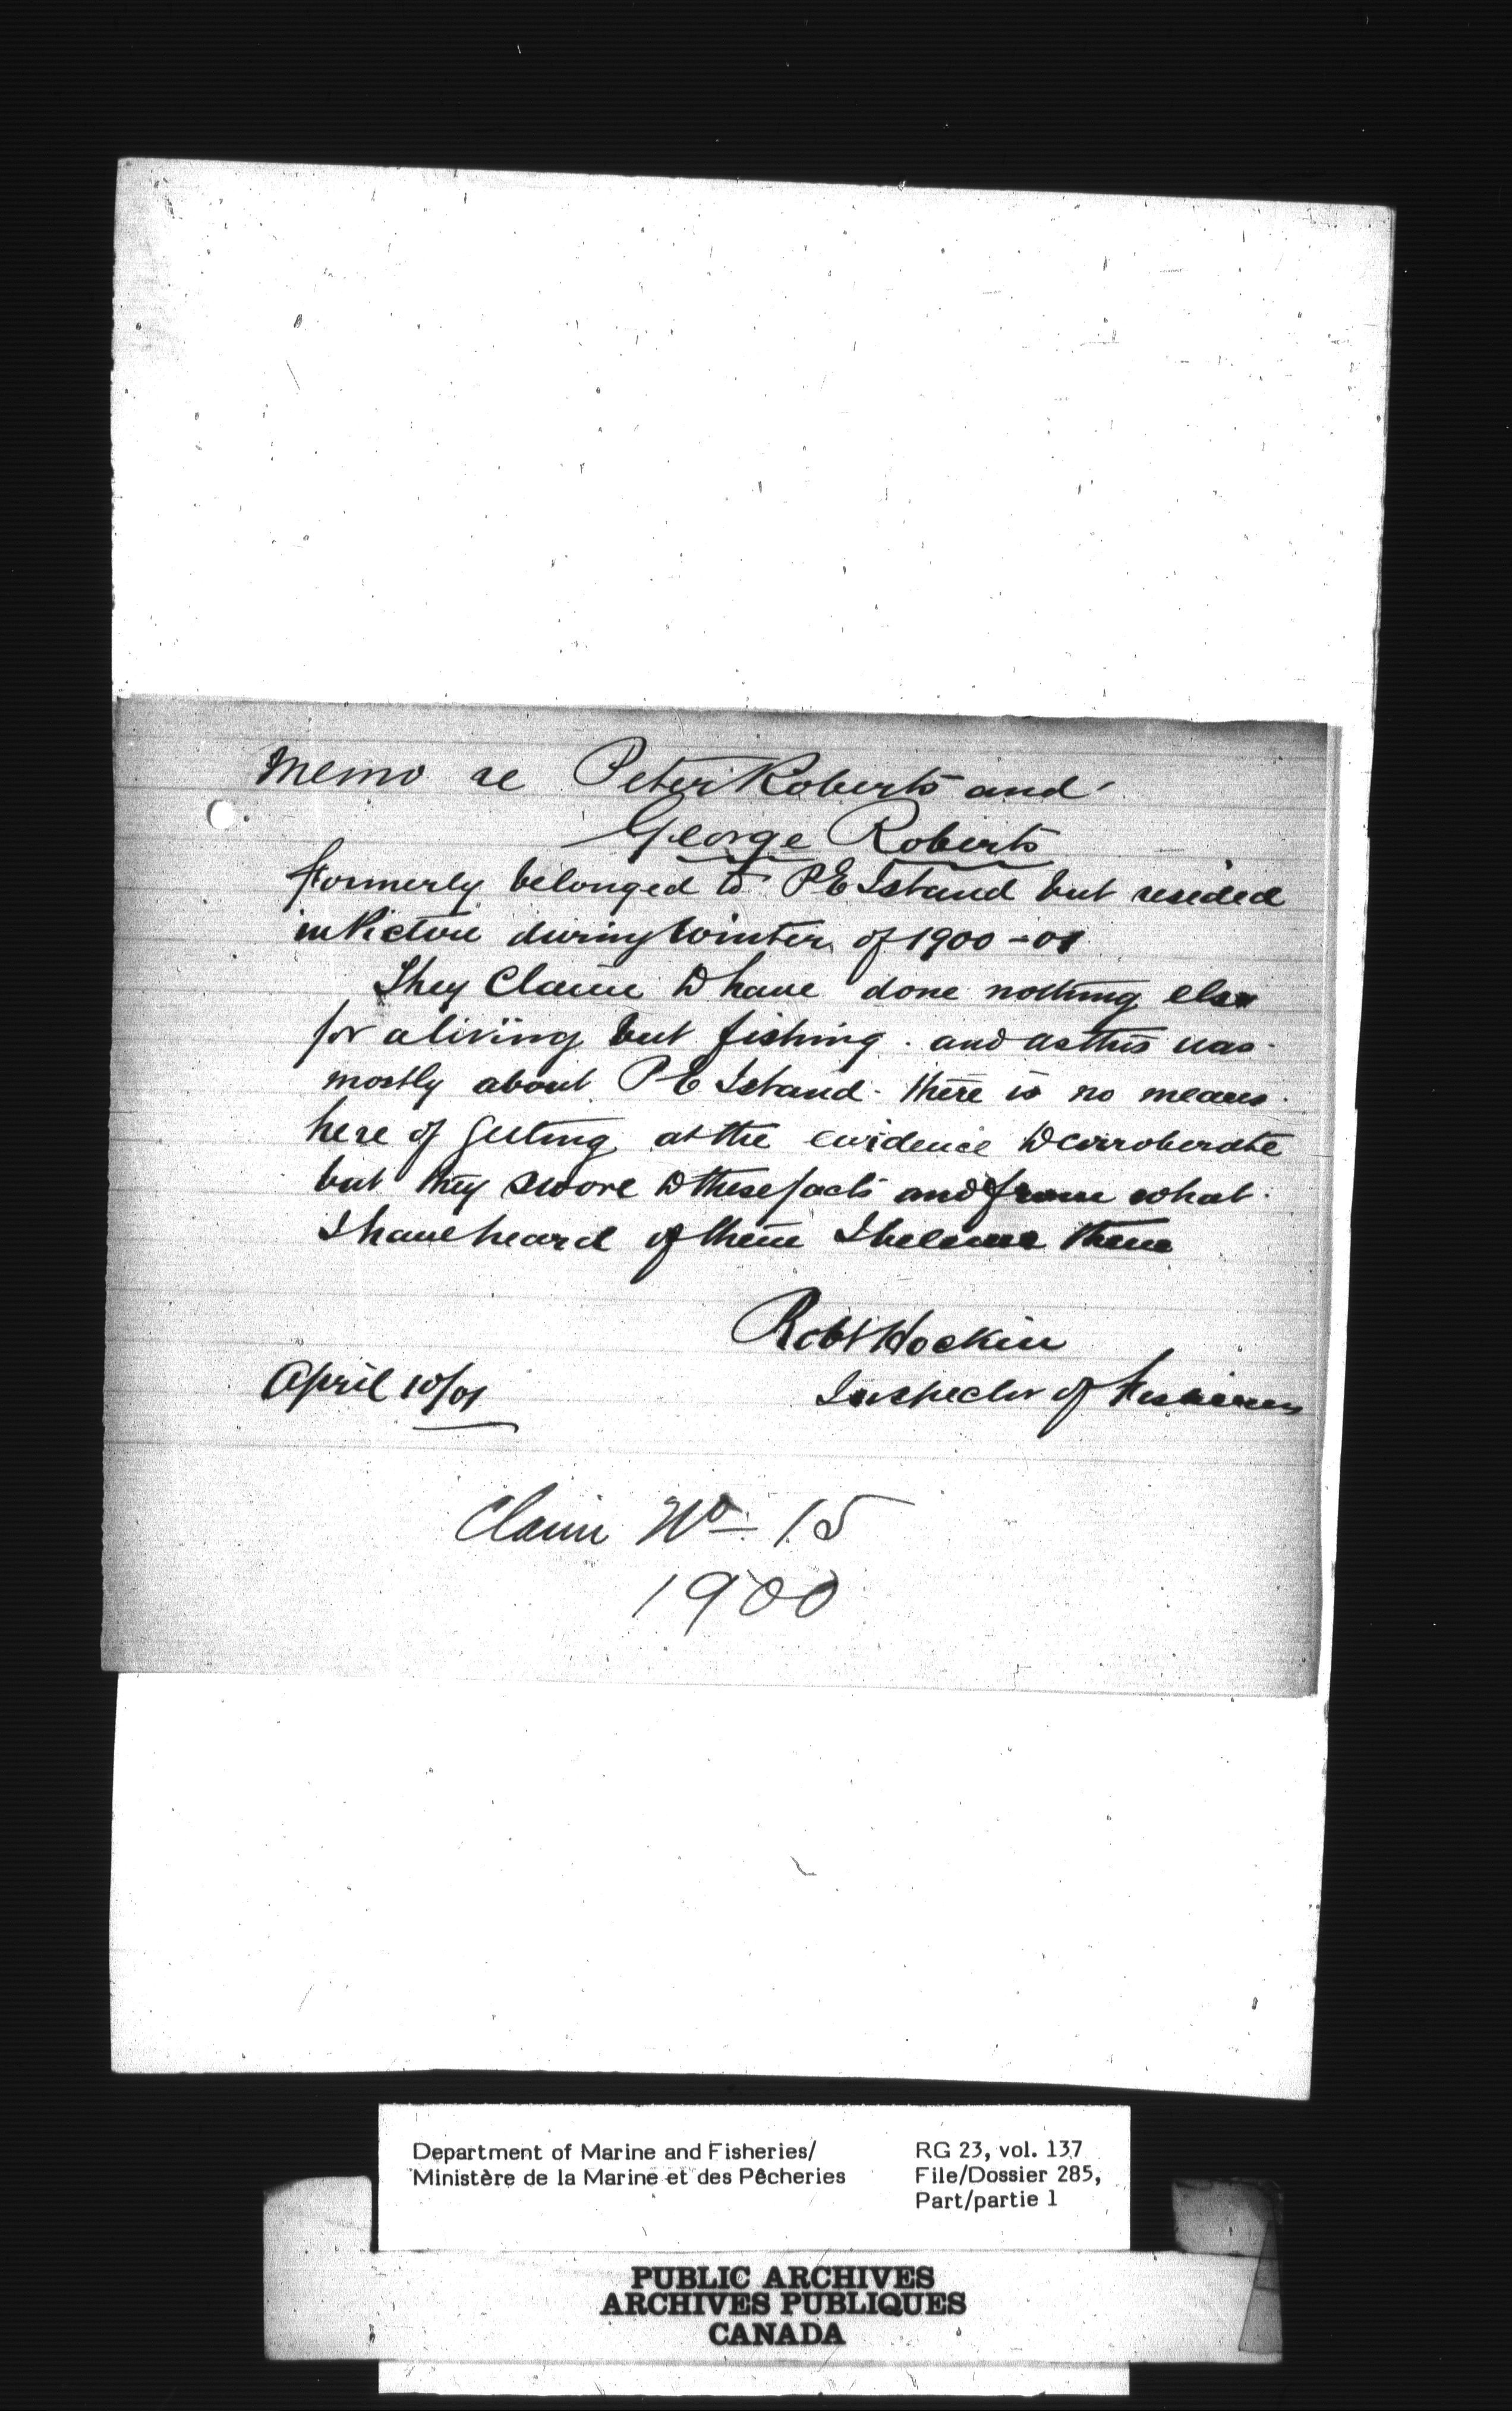 Memo re Peter Roberts and
George Roberts
formerly belonged to P E Island but resided
in Pictou during Winter of 1900-01
They Claim to have done nothing else
for a living but fishing. and as this was
mostly about P E Island - there is no means
here of getting at the evidence to corroberate
but they swore to these facts and from what
I have heard of them I believe them
Robt Hockin
April 10/01 Inspector of Fisheries
Claim No 15
1900
Department of Marine and Fisheries/ RG 23, vol. 137
Ministère de la Marine et des Pêcheries File/Dossier 285,
Part/partie 1
PUBLIC ARCHIVES
ARCHIVES PUBLIQUES
CANADA